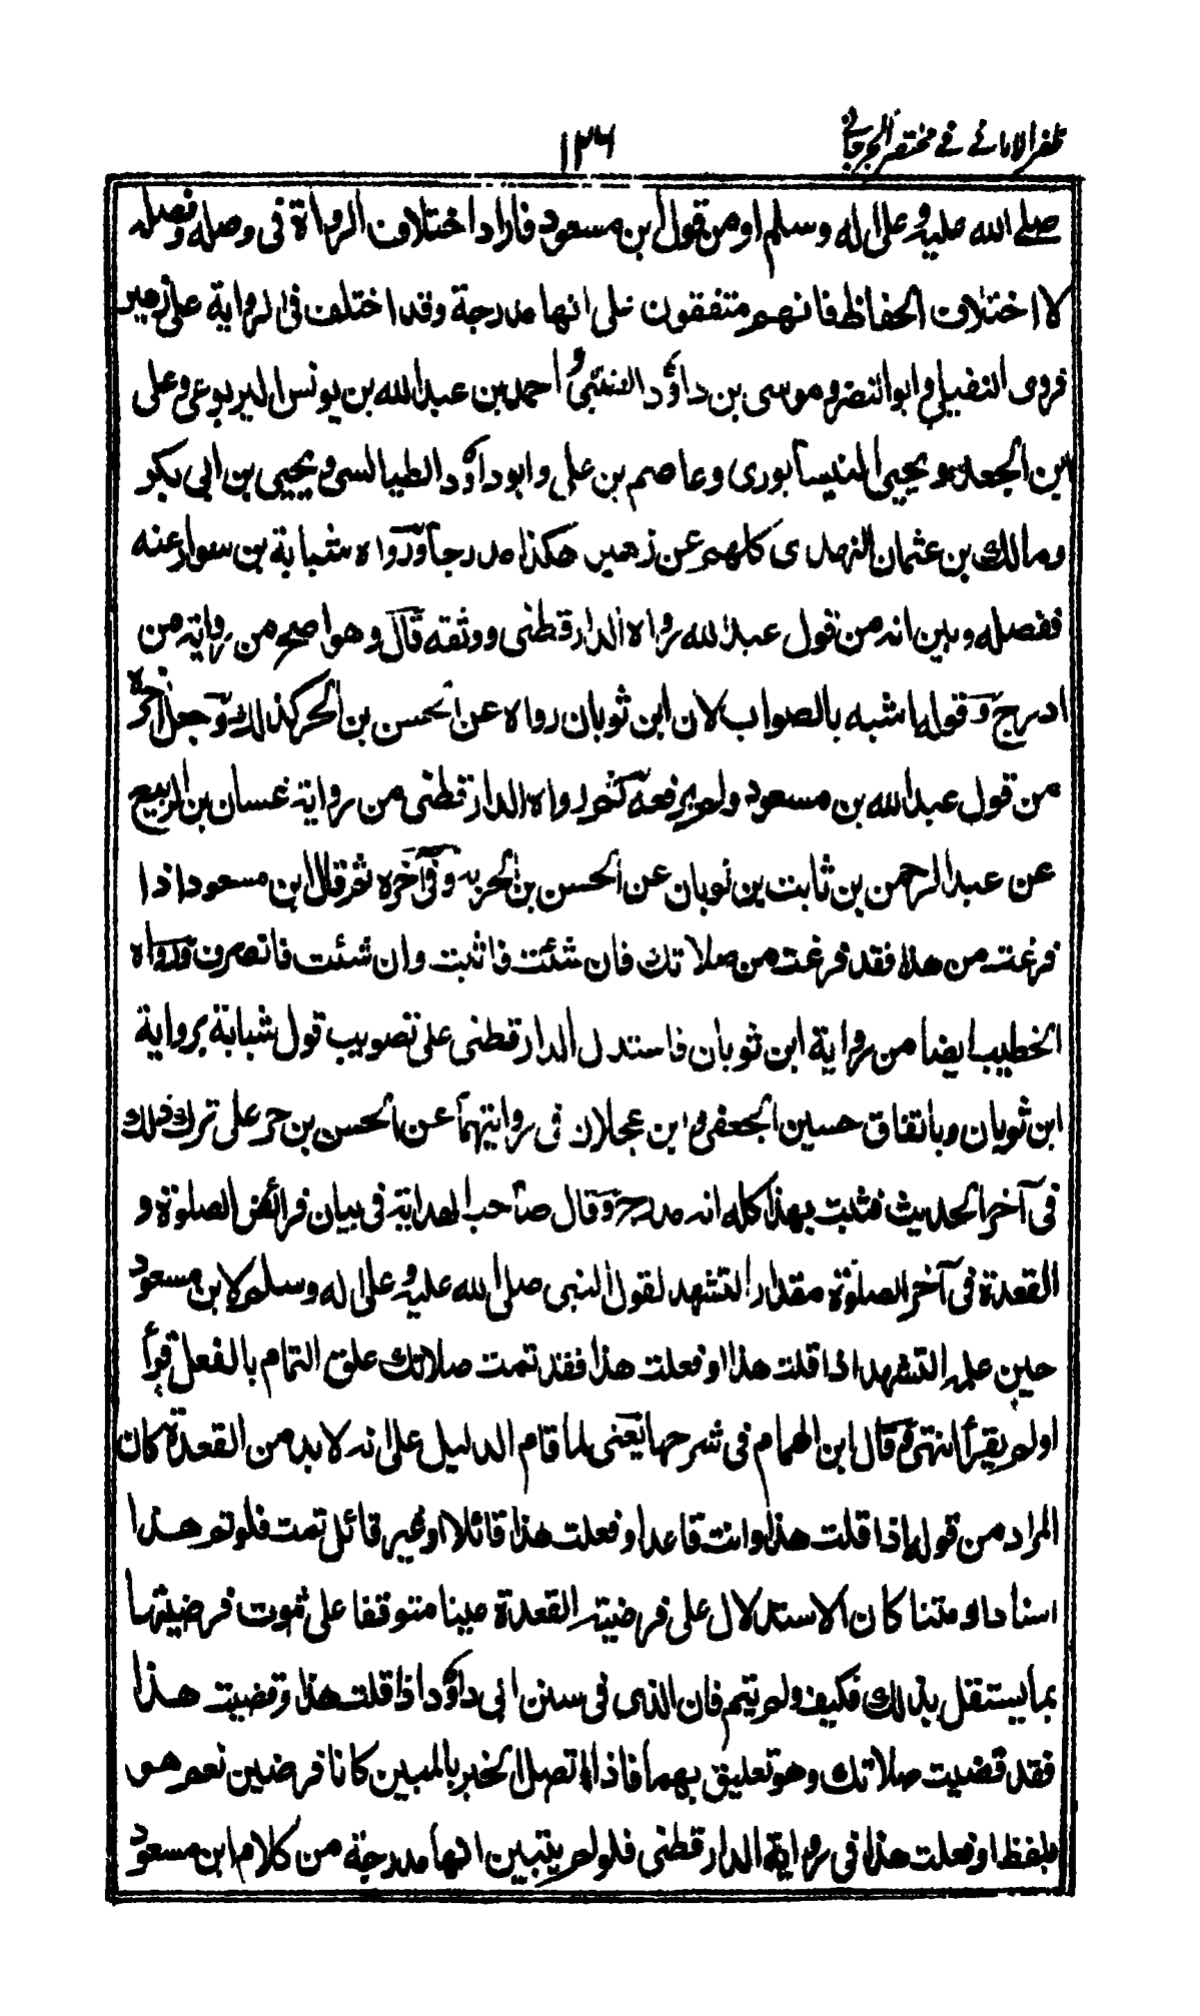 ظفر الامانے فے مختصر الجرجانے
١٣٦
صلے الله عليه وعلى اله وسلم او من قول ابن مسعود فاراد اختلاف الرواة فى وصله وفصله
لا اختلاف الحفاظ فانهم متفقون على انها مدرجة وقد اختلف فى الرواية على زهير
فروى النفيلى وابو النضر وموسى بن داؤد الضبى واحمد بن عبد الله بن يونس اليربوعى وعلى
ابن الجعد ويحيى النيسابورى وعاصم بن على وابو داؤد الطيالسى ويحيى بن ابى بكر
ومالك بن عثمان النهدى كلهم عن زهير هكذا مدرجا ورواه شبابة بن سوار عنه
ففصله وبين انه من قول عبد الله رواه الدارقطنى ووثقه قال وهو اصح من رواية من
ادرج وقوله اشبه بالصواب لان ابن ثوبان رواه عن الحسن بن الحر كذلك وجعل آخره
من قول عبد الله بن مسعود ولم يرفعه ثم رواه الدارقطنى من رواية غسان بن الربيع
عن عبد الرحمن بن ثابت بن ثوبان عن الحسن بن الحر به وفى آخره ثم قال ابن مسعود اذا
فرغت من هذا فقد فرغت من صلاتك فان شئت فاثبت وان شئت فانصرف ورواه
الخطيب ايضا من رواية ابن ثوبان فاستدل الدارقطنى على تصويب قول شبابة برواية
ابن ثوبان وباتفاق حسين الجعفى وابن عجلان فى روايتهما عن الحسن بن حر على ترك ذلك
فى آخر الحديث فثبت بهذا كله انه مدرج وقال صاحب الهداية فى بيان فرائض الصلوة و
القعدة فى آخر الصلوة مقدار التشهد لقول النبى صلى الله عليه وعلى اله وسلم لابن مسعود
حين علمه التشهد اذا قلت هذا او فعلت هذا فقد تمت صلاتك علق التمام بالفعل قرأ
او لم يقرأ انتهى وقال ابن الهمام فى شرحها يعنى لما قام الدليل على انه لا بد من القعدة كان
المراد من قوله اذا قلت هذا وانت قاعد او فعلت هذا قائلا او غير قائل تمت فلو تم هذا
اسنادا ومتنا كان الاستدلال على فرضية القعدة عينا متوقفا على ثبوت فرضيتها
بما يستقل بذلك فكيف ولم يتم فان الذى فى سنن ابى داؤد اذا قلت هذا وقضيت هذا
فقد قضيت صلاتك وهو تعليق بهما فاذا اتصل الخبر بالمبين كانا فرضين نعم هو
بلفظ او فعلت هذا فى رواية الدارقطنى فلو لم يتبين انها مدرجة من كلام ابن مسعود